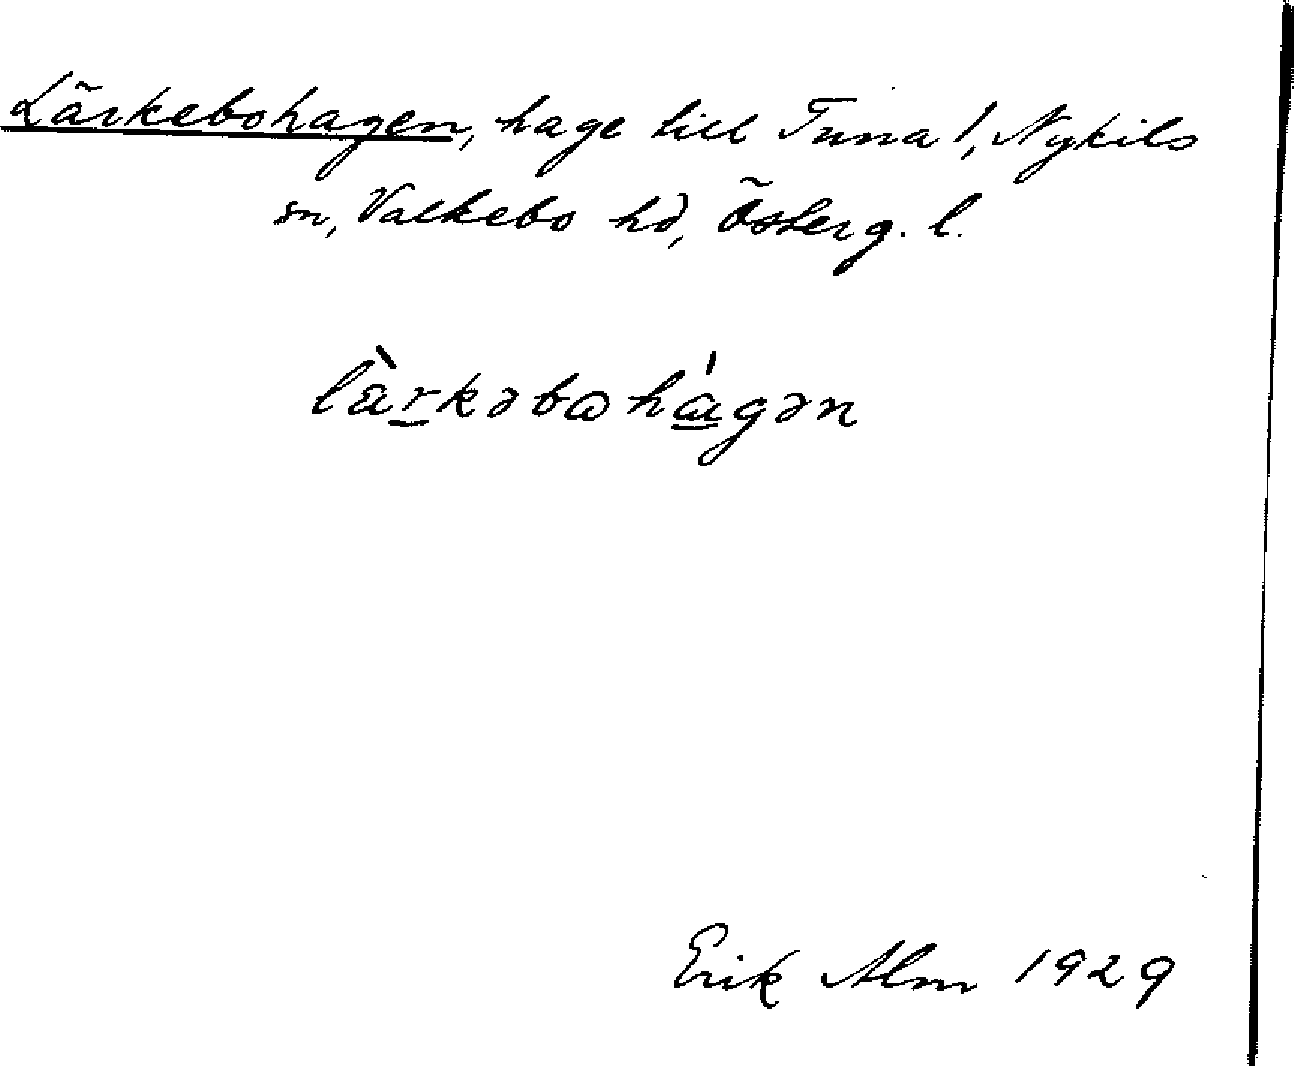 Lärkebohagen, hage till Tuna!, Nykils
sn, Valkebo hd, Österg. l.
lὰrkəbωhάgən
Erik Alm 1929